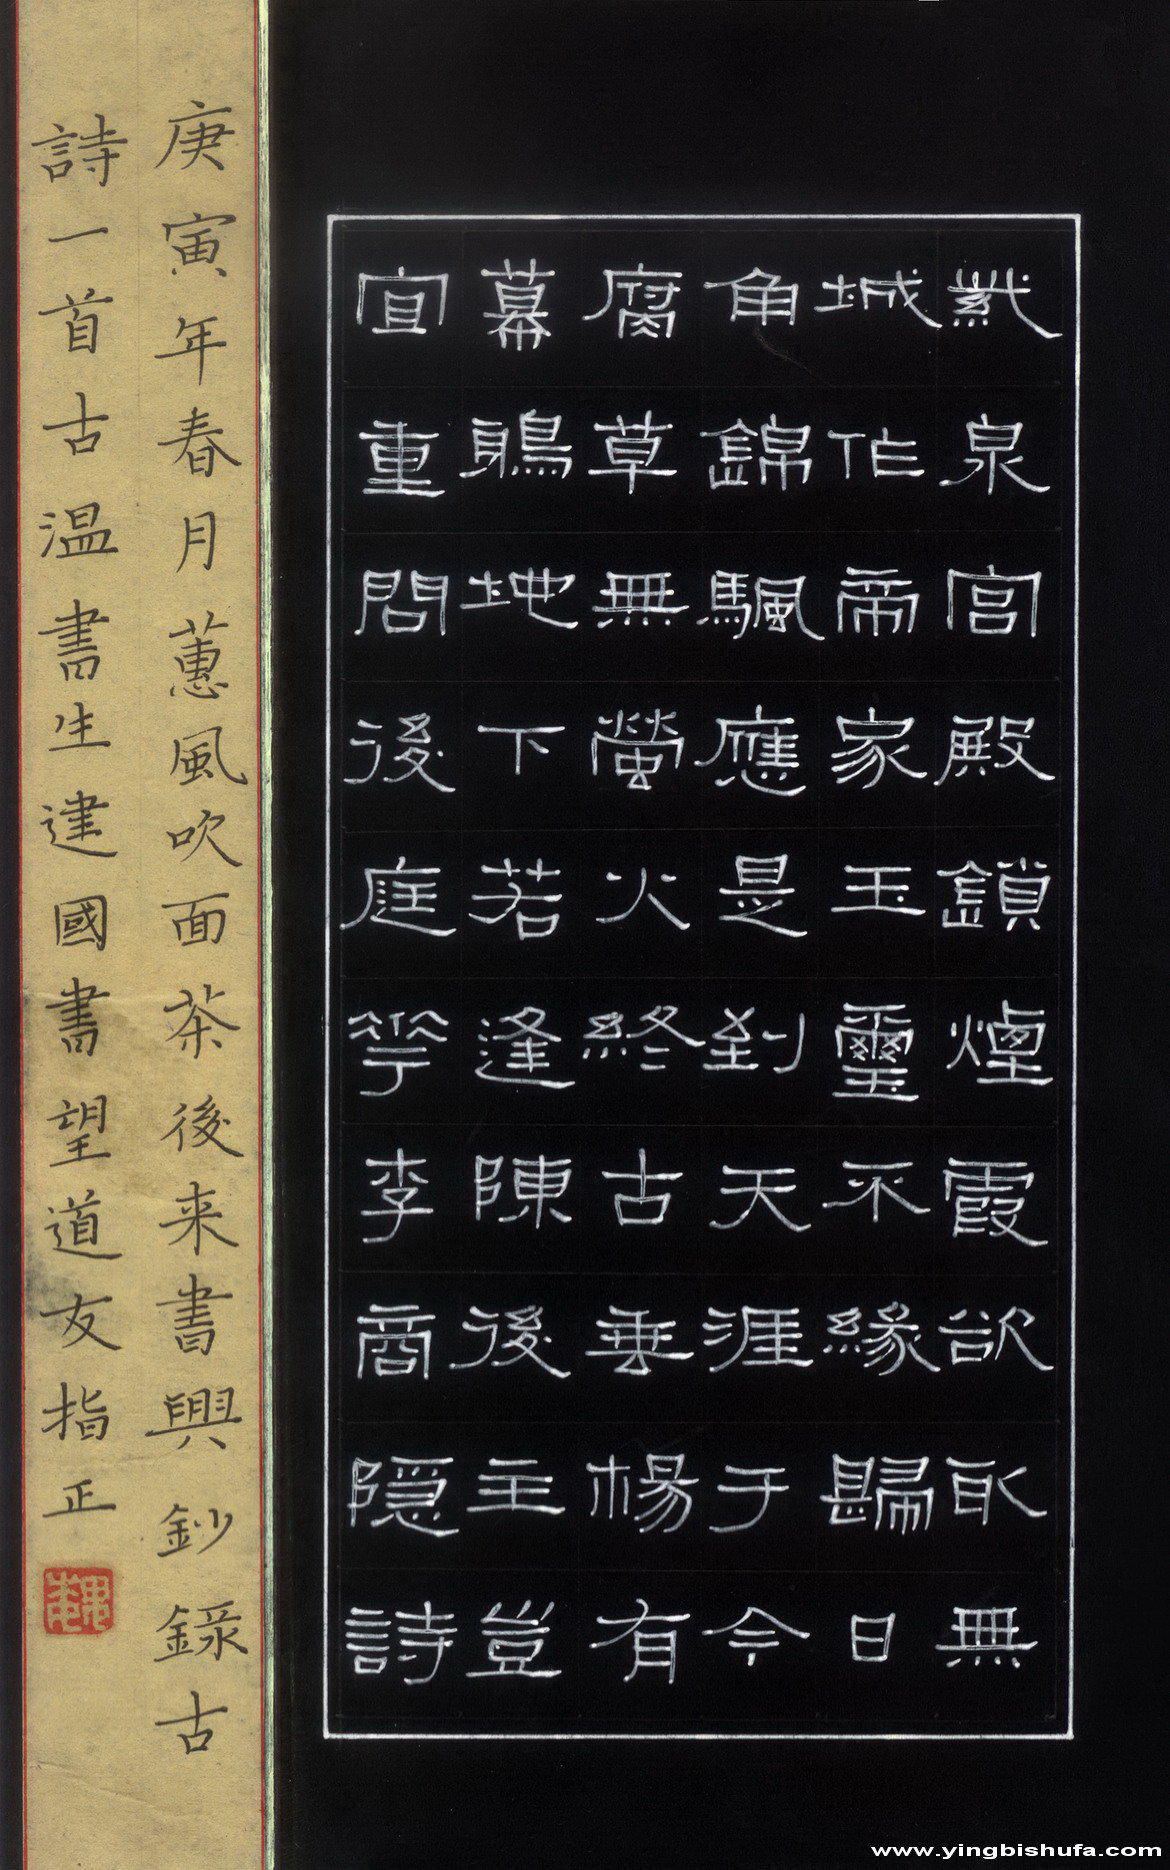 紫泉宮殿鎖煙霞欲取無
城作帝家玉璽不緣歸日
角錦颿應是到天涯于今
腐草無螢火終古垂楊有
幕鴉地下若逢陳後主豈
宜重問後庭花李商隱詩
庚寅年春月蕙風吹面茶後来書興鈔錄古
詩一首古温書生建國書望道友指正
www.yingbishufa.com